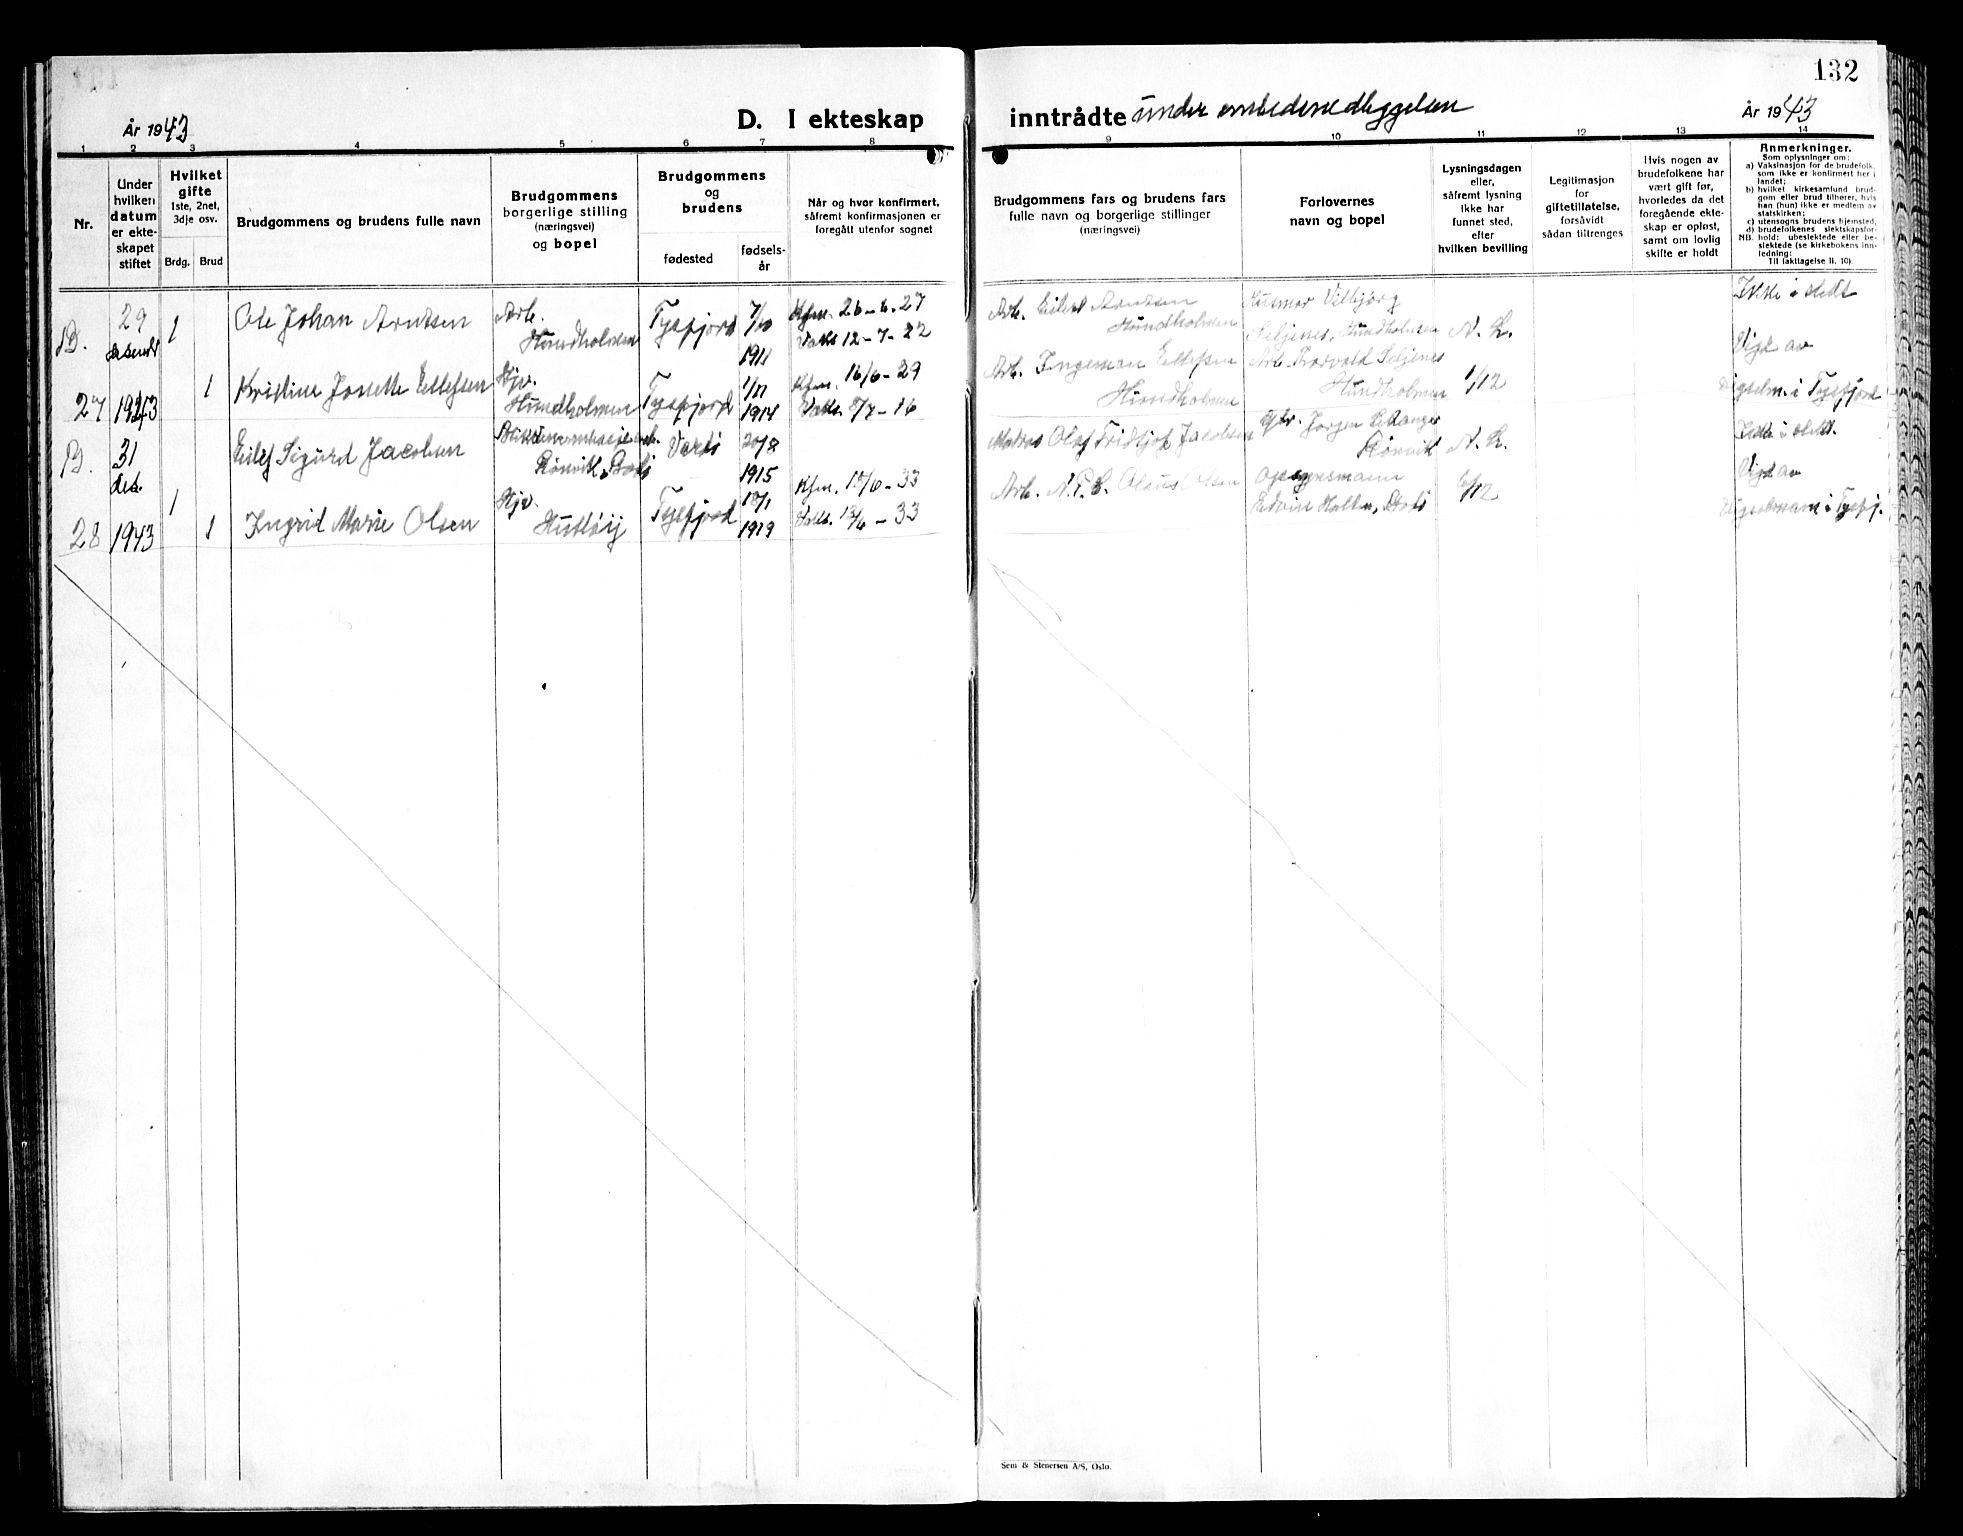 132
År 1943
D. I ekteskap inntrådte under embedsnedleggelsen
År 1943
1 2 3 4 5 6 7 8 9 10 11 12 13 14
Nr.
Under
hvilken
datum
er ekte-
skapet
stiftet
Hvilket
gifte
1ste, 2net,
3dje osv.
Brdg. Brud
Brudgommens og brudens fulle navn
Brudgommens
borgerlige stilling
(næringsvei)
og bopel
Brudgommens
og
brudens
fødested
fødsels-
år
Når og hvor konfirmert,
såfremt konfirmasjonen er
foregått utenfor sognet
Brudgommens fars og brudens fars
fulle navn og borgerlige stillinger
(næringsvei)
Forlovernes
navn og bopel
Lysningsdagen
eller,
såfremt lysning
ikke har
funnet sted,
efter
hvilken bevilling
Legitimasjon
for
giftetillatelse,
forsåvidt
sådan tiltrenges
Hvis nogen av
brudefolkene har
vært gift før,
hvorledes da det
foregående ekte-
skap er opløst,
samt om lovlig
skifte er holdt
Anmerkninger.
Som oplysninger om:
a) Vaksinasjon for de brudefolk,
som ikke er konfirmert her i
landet;
b) hvilket kirkesamfund brud-
gom eller brud tilhører, hvis
han (hun) ikke er medlem av
statskirken;
c) utensogns brudens hjemsted,
d) brudefolkenes slektskapsfor-
hold: ubeslektede eller be-
slektede (se kirkebokens inn-
ledning:
NB.
Til iakttagelse II. 10).
B.
27
29
desember
1943
1
1
Ole Johan Arntsen
Kristine Jonette Ellefsen
Arb.
Hundholmen
Hjv.
Hundholmen
Tysfjord
Tysfjord
7/10
1911
1/11
1914
Kfm. 26-6-27
Vaks 12-7-22
Kfm. 16/6-29
Vaks. 8/7-16
Arb. Eilert Arntsen
Hundholmen
Arb. Ingeman Ellefsen
Hundholmen
Husmor Vilbjørg
Seljenes, Hundholmen
Arb. Torvald Seljenes
Hundholmen
N. L.
1/12
Ikke i slekt
Vigd av
vigselm. i Tysfjord
B.
28
31
des.
1943
1
1
Eilef Sigurd Jacobsen
Ingrid Marie Olsen
Rønvik, Bodø
Hjv.
Hulløy
Vardø
Tysfjord
20/8
1915
18/1
1919
Kfm. 18/6-33
Vaks. 13/6-33
Olaf Fridtjof Jacobsen
Arb. N.P.E. Olaus Olsen
Jørgen
Rønvik
Opsynsmann
Edvin Holten, Bodø
N. L.
6/12
Ikke i slekt.
Vigd av
Vigselsmann i Tysfj.
Sem & Stenersen A/S, Oslo.